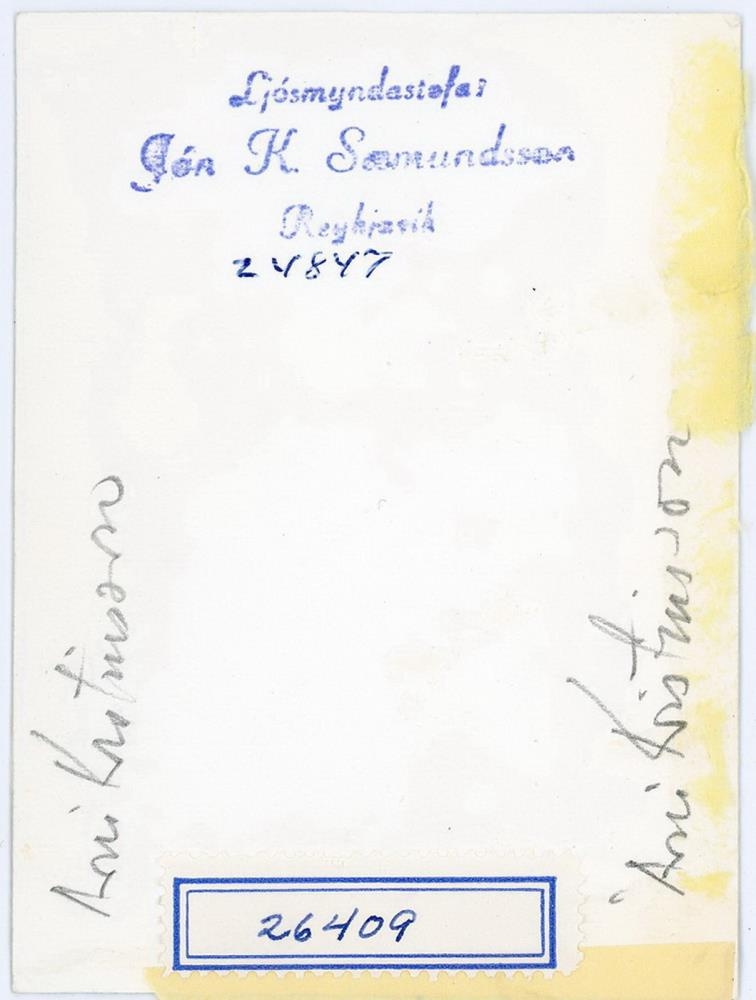 Ljósmyndastofa:
Jón K. Sæmundsson
Reykjavík
24847
Árni Kristinsson
Árni Kristinsson
26409